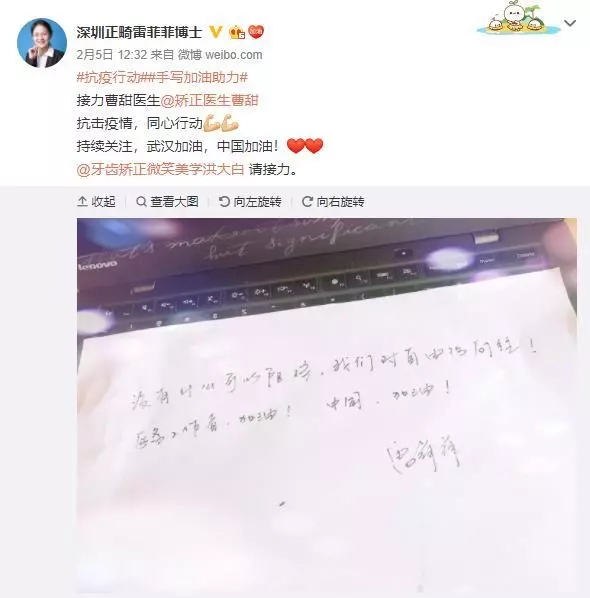 深圳正畸雷菲菲博士
2月5日 12:32 来自 微博 weibo.com
#抗疫行动##手写加油助力#
接力曹甜医生@矫正医生曹甜
抗击疫情，同心行动💪💪
持续关注，武汉加油，中国加油！❤️❤️
@牙齿矫正微笑美学洪大白 请接力。
收起 查看大图 向左旋转 向右旋转
but significan
lenovo
Home
Delete
没有什么可以阻挡，我们对自由的向往！
医务工作者，加油！ 中国，加油！
雷菲菲